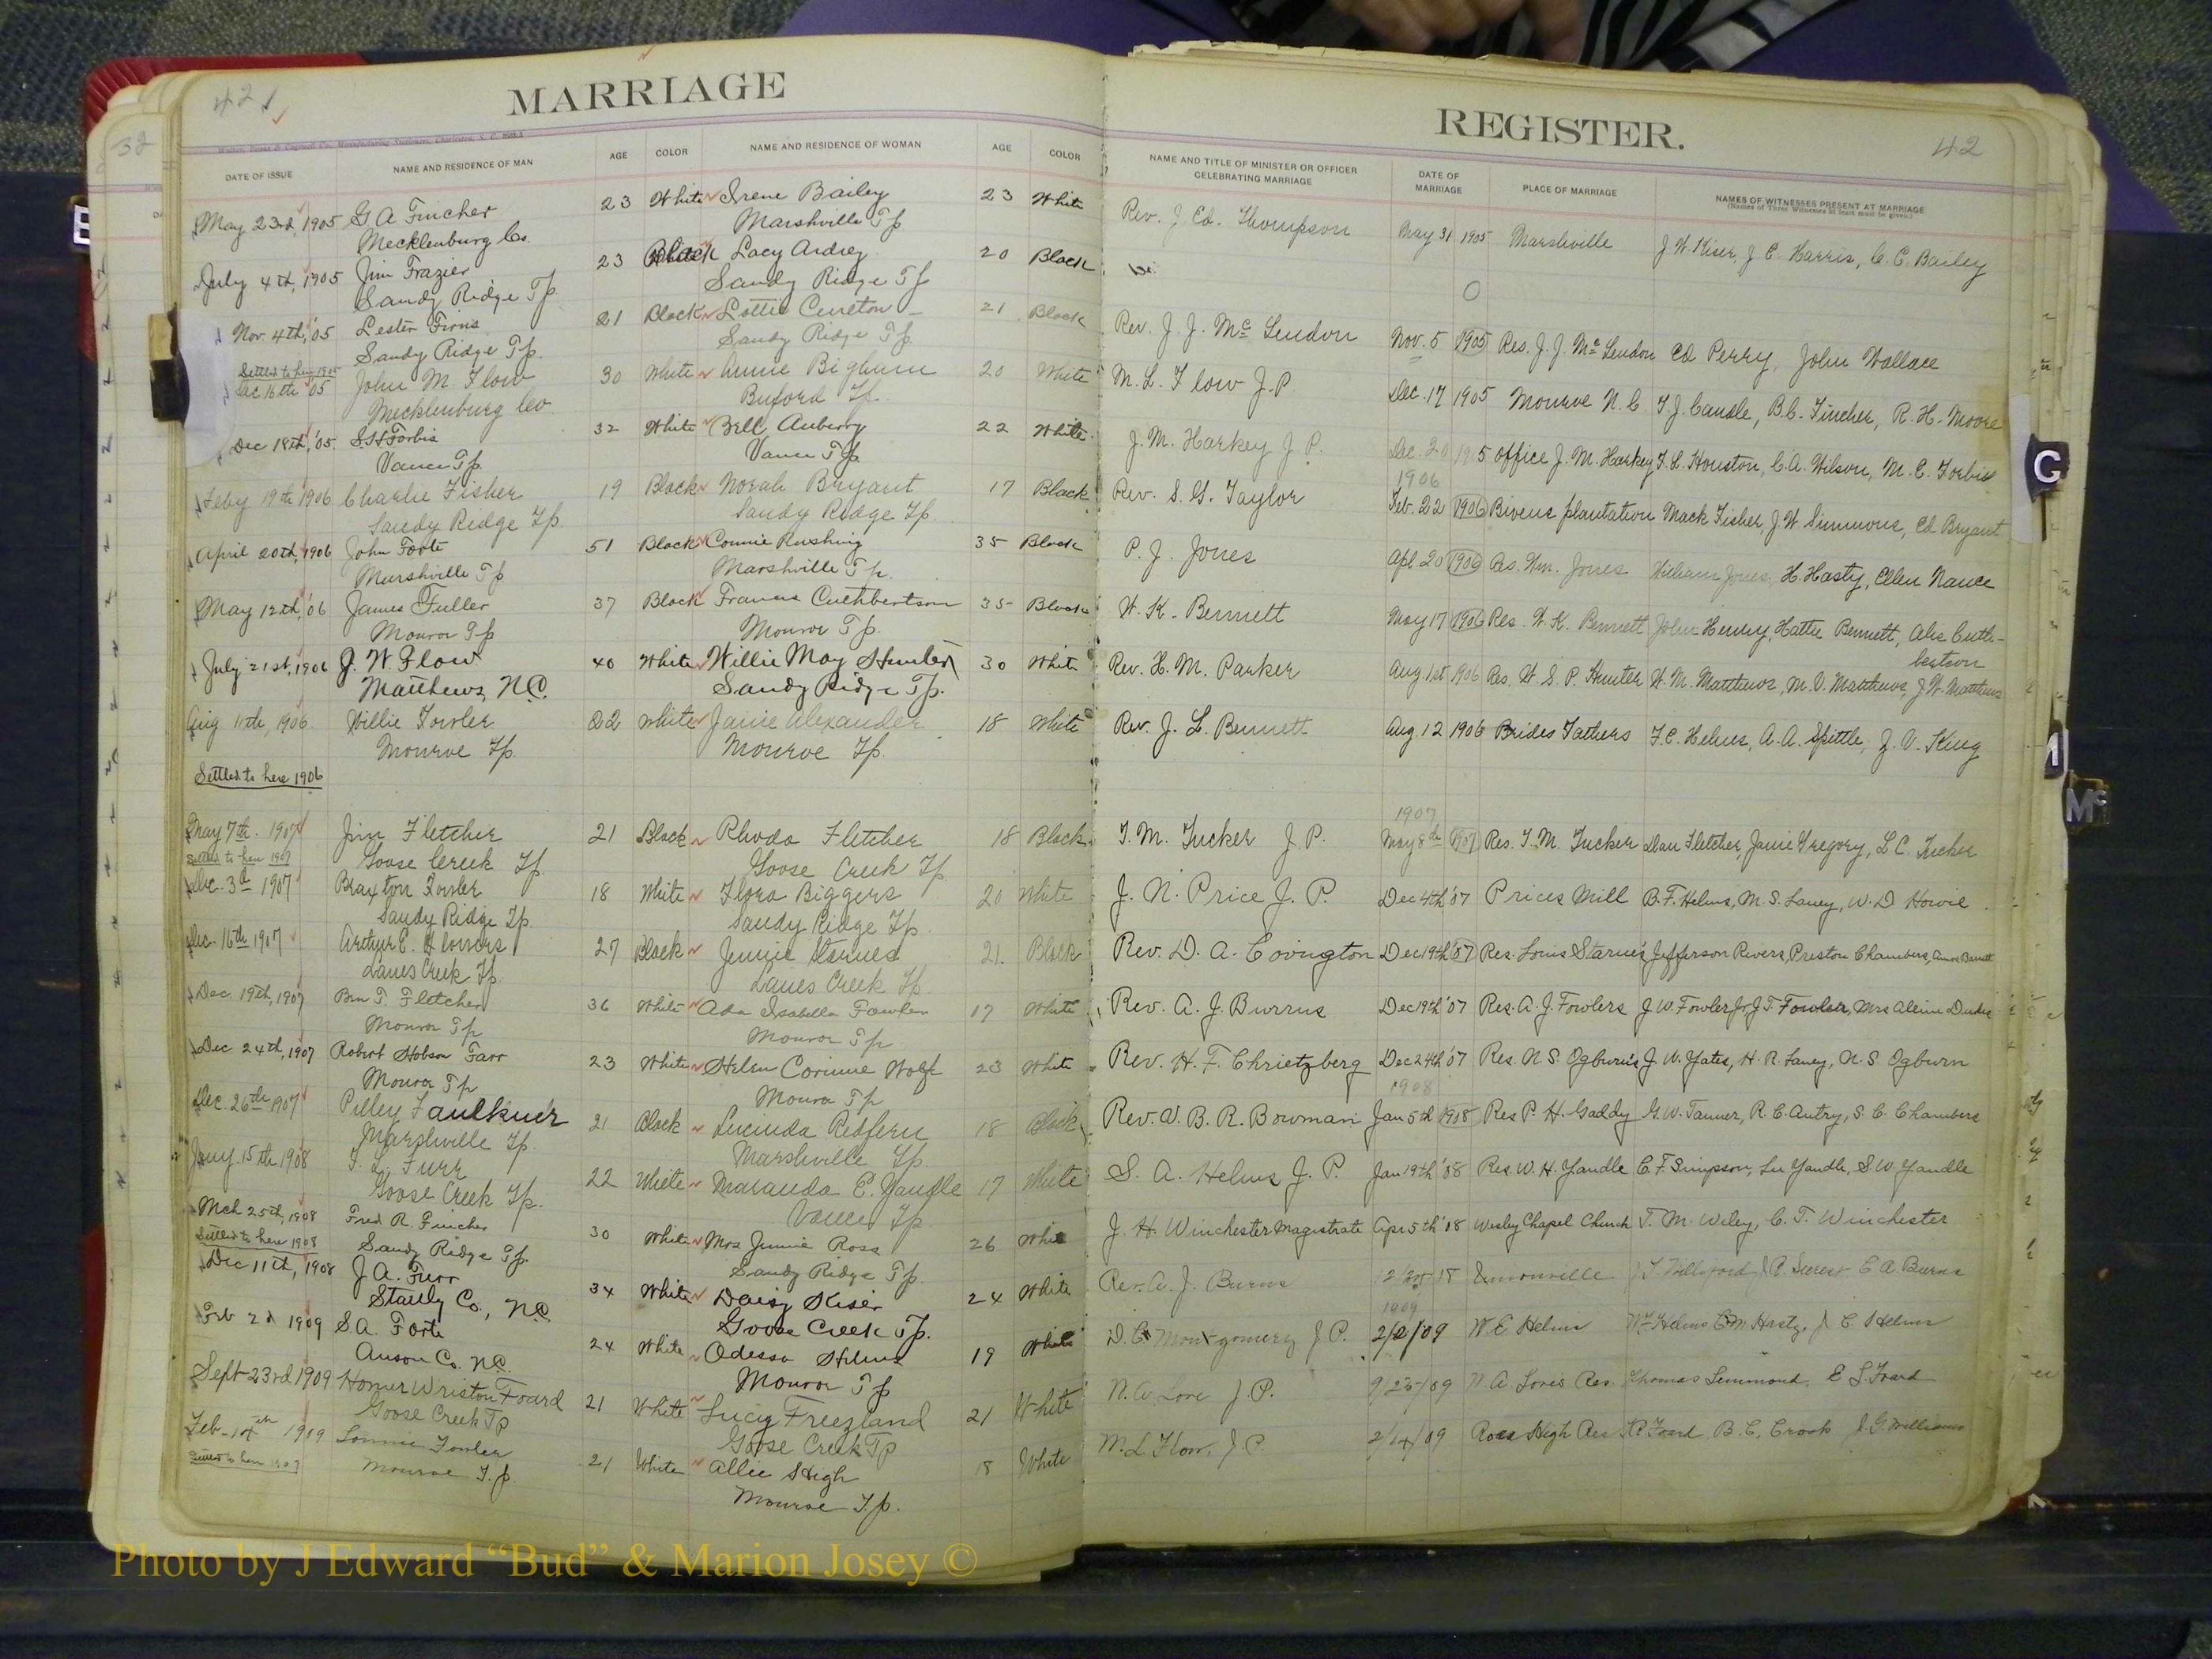 42
MARRIAGE
REGISTER.
42
32
DATE OF ISSUE
NAME AND RESIDENCE OF MAN
AGE
COLOR
NAME AND RESIDENCE OF WOMAN
AGE
COLOR
NAME AND TITLE OF MINISTER OR OFFICER
CELEBRATING MARRIAGE
DATE OF
MARRIAGE
PLACE OF MARRIAGE
NAMES OF WITNESSES PRESENT AT MARRIAGE
(Names of Three Witnesses at least must be given.)
May 23rd, 1905 G A Fincher 23 White Irene Bailey 23 White Rev. J. Ed. Thompson May 31 1905 Marshville J W. Kiser, J E. Harris, C. C. Bailey
Mecklenburg Co. Marshville Tp
July 4th, 1905 Jim Frazier 23 Black Lacy Ardrey 20 Black
Sandy Ridge Tp. Sandy Ridge Tp
Nov. 4th, '05 Lester 21 Black Lottie Cureton 21 Black Rev. J. J. Mc Lendon Nov. 5 1905 Res. J. J. Mc Lendon Ed Perry, John Wallace
Sandy Ridge Tp. Sandy Ridge Tp.
Settled to here 1905
Dec 16th '05 John M Flow 30 White Annie Bigham 20 White M. L. Flow J.P. Dec. 17 1905 Monroe N. C T. J. Caudle, B. C. Fincher, R. H. Moore
Mecklenburg Co. Buford Tp.
Dec 18th, '05. S H Forbis 32 White Bell Auberry 22 White J. M. Harkey J P. Dec. 20 1905 office J. M. Harkey T. L. Houston, C. A. Wilson, M. E. Forbis
Vance Tp. Vance Tp.
1906
Feby 19th 1906 Charlie Fisher 19 Black Norah Bryant 17 Black Rev. S. G. Taylor Feb. 22 1906 Bivens plantation Mack Fisher, J. W Simmons, Ed Bryant
Sandy Ridge Tp. Sandy Ridge Tp.
April 20th, 1906 John Foote 51 Black Connie Rushing 35 Black P. J. Jones Apl 20 1906 Res. Wm. Jones William Jones, H. Hasty, Ellen Nance
Marshville Tp Marshville Tp.
May 12th, '06 James Fuller 37 Black Francis Cuthbertson 35 Black W. K. Bennett May 17 1906 Res. W. K. Bennett John Henry, Hattie Bennett, Alex Cuth-
bertson
Monroe Tp Monroe Tp.
July 21st, 1906 J. W. Flow 40 White Willie May Hunter 30 White Rev. H. M. Parker Aug 1st 1906 Res. W. S. P. Hunter W. M. Matthews, M. V. Matthews, J. W. Matthews
Matthews, N.C. Sandy Ridge Tp.
Aug 11th, 1906. Willie Fowler 22 White Janie Alexander 18 White Rev. J. L. Bennett Aug 12 1906 Brides Fathers F. C. Helms, A. A. Spittle, Z. V. King
Monroe Tp. Monroe Tp.
Settled to here 1906
1907
May 7th. 1907 Jim Fletcher 21 Black Rhoda Fletcher 18 Black T. M. Tucker J P. May 8th 1907 Res. T. M. Tucker Dan Fletcher, Janie Gregory, L C. Tucker
Settled to here 1907 Goose Creek Tp. Goose Creek Tp
Dec. 3d 1907 Braxton Fowler 18 White Flora Biggers 20 White J. N. Price J. P. Dec 4th '07 Prices Mill B. F. Helms, M. S. Laney, W. D Howie
Sandy Ridge Tp. Sandy Ridge Tp.
Dec. 16th 1907 Arthur E. Flowers 27 Black Jennie Starnes 21. Black Rev. D. A. Covington Dec 19th '07 Res. Louis Starnes Jefferson Rivers, Preston Chambers,
Lanes Creek Tp. Lanes Creek Tp.
Dec. 19th, 1907 Ben T. Fletcher 36 White Ada Isabella Fowler 17 White Rev. A. J. Burrus Dec 19th '07 Res. A. J. Fowlers J W. Fowler Jr, J. T. Fowler, Mrs
Monroe Tp Monroe Tp
Dec 24th, 1907 Robert Hobson Farr 23 White Helen Corinne Wolfe 23 White Rev. H. F. Chrietzberg Dec 24th '07 Res. N S. Ogburn's J. W. Yates, H. R. Laney, N. S. Ogburn
Monroe Tp Monroe Tp
1908
Dec. 26th 1907 Pilley Faulkner 21 Black Lucinda Redfern 18 Black Rev. W. B. R. Bowman Jan 5th 1908 Res P. H. Gaddy G. W. Tanner, R. E. Autry, S. C. Chambers
Marshville Tp. Marshville Tp.
Jany 15th 1908 T. L. Furr 22 White Maranda E. Yandle 17 White S. A. Helms J. P. Jan 19th '08 Res. W. H. Yandle C. F. Simpson, Lee Yandle, S. W. Yandle
Goose Creek Tp. Vance Tp.
Mch 25th, 1908 Fred R. Fincher 30 White Mrs Jennie Ross 26 White J. H. Winchester Magistrate Apr 5th '08 Wesley Chapel Church T. M. Wiley, C. T. Winchester
Settled to here 1908 Sandy Ridge Tp. Sandy Ridge Tp.
Dec 11th, 1908 J A. Furr 34 White Daisy Kiser 24 White Rev. A. J. Burns Unionville E A. Burns
Stanly Co., N.C. Goose Creek Tp.
1909
Feb 2d 1909 S. A. Forte 24 White Odessa Helms 19 White D. C. Montgomery J P. 2/2/09 W. E Helms J E Helms
Anson Co. N.C. Monroe Tp
Sept 23rd 1909 Homer Wriston Foard 21 White Lucy Freezland 21 White W. A. Love J.P. 9/23/09 W. A. Love's Res. Thomas Simmond, E S. Foard
Goose Creek Tp Goose Creek Tp
Feb-14th 1909 Lonnie Fowler 21 White Allie High 18 White M. L Flow, J. P. 2/14/09 Ross High Res Foard, B. C. Crook J. G. Williams
Settled to here 1909 Monroe T.p. Monroe T.p.
G
M
Mc
Photo by J Edward “Bud” & Marion Josey ©